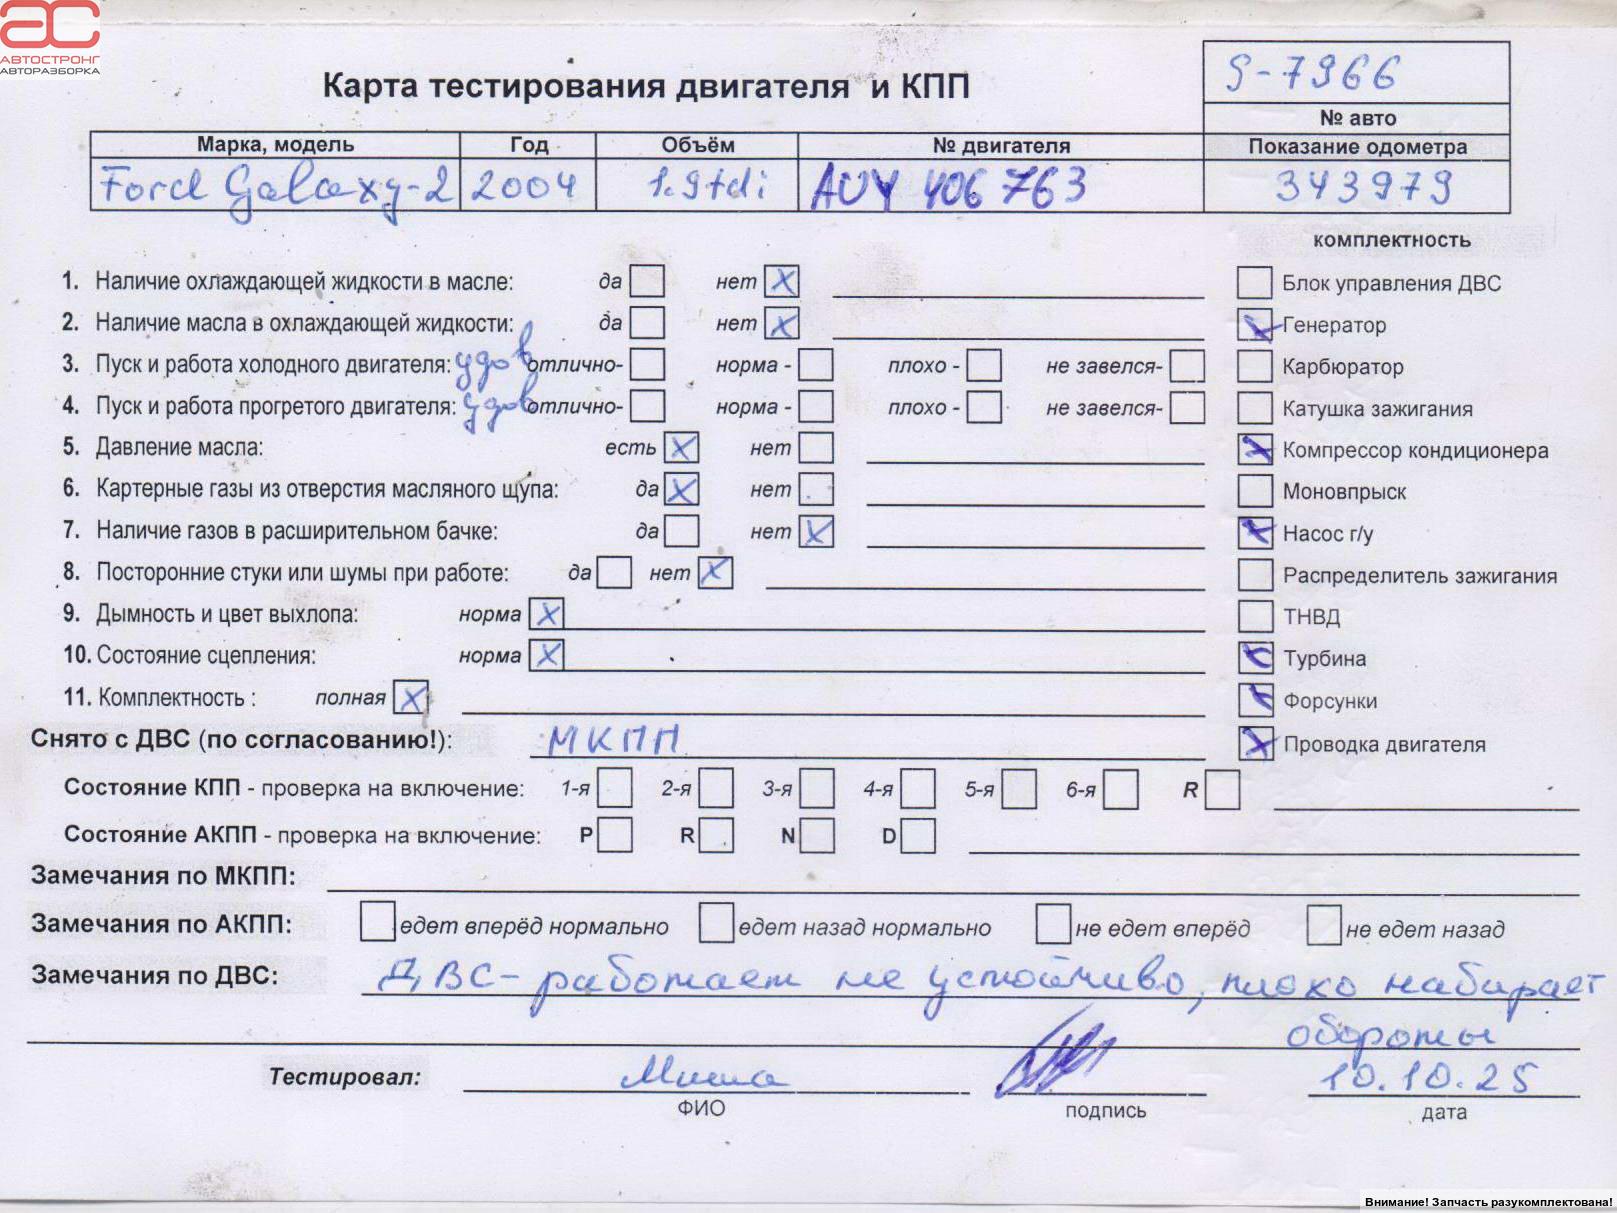 АВТОСТРОНГ
АВТОРАЗБОРКА
Карта тестирования двигателя и КПП
9-7966
№ авто
Марка, модель Год Объём № двигателя Показание одометра
Ford Galaxy-2 2004 1.9tdi AUY 406763 343979
комплектность
1. Наличие охлаждающей жидкости в масле: да нет X Блок управления ДВС
2. Наличие масла в охлаждающей жидкости: да нет X Генератор
3. Пуск и работа холодного двигателя: удов отлично- норма - плохо - не завелся- Карбюратор
4. Пуск и работа прогретого двигателя: удов отлично- норма - плохо - не завелся- Катушка зажигания
5. Давление масла: есть X нет Компрессор кондиционера
6. Картерные газы из отверстия масляного щупа: да X нет Моновпрыск
7. Наличие газов в расширительном бачке: да нет X Насос г/у
8. Посторонние стуки или шумы при работе: да нет X Распределитель зажигания
9. Дымность и цвет выхлопа: норма X ТНВД
10. Состояние сцепления: норма X Турбина
11. Комплектность : полная X Форсунки
Снято с ДВС (по согласованию!): МКПП Проводка двигателя
Состояние КПП - проверка на включение: 1-я 2-я 3-я 4-я 5-я 6-я R
Состояние АКПП - проверка на включение: P R N D
Замечания по МКПП:
Замечания по АКПП: едет вперёд нормально едет назад нормально не едет вперёд не едет назад
Замечания по ДВС: ДВС- работает не устойчиво, плохо набирает
обороты
Тестировал: Миша 10.10.25
ФИО подпись дата
Внимание! Запчасть разукомплектована!